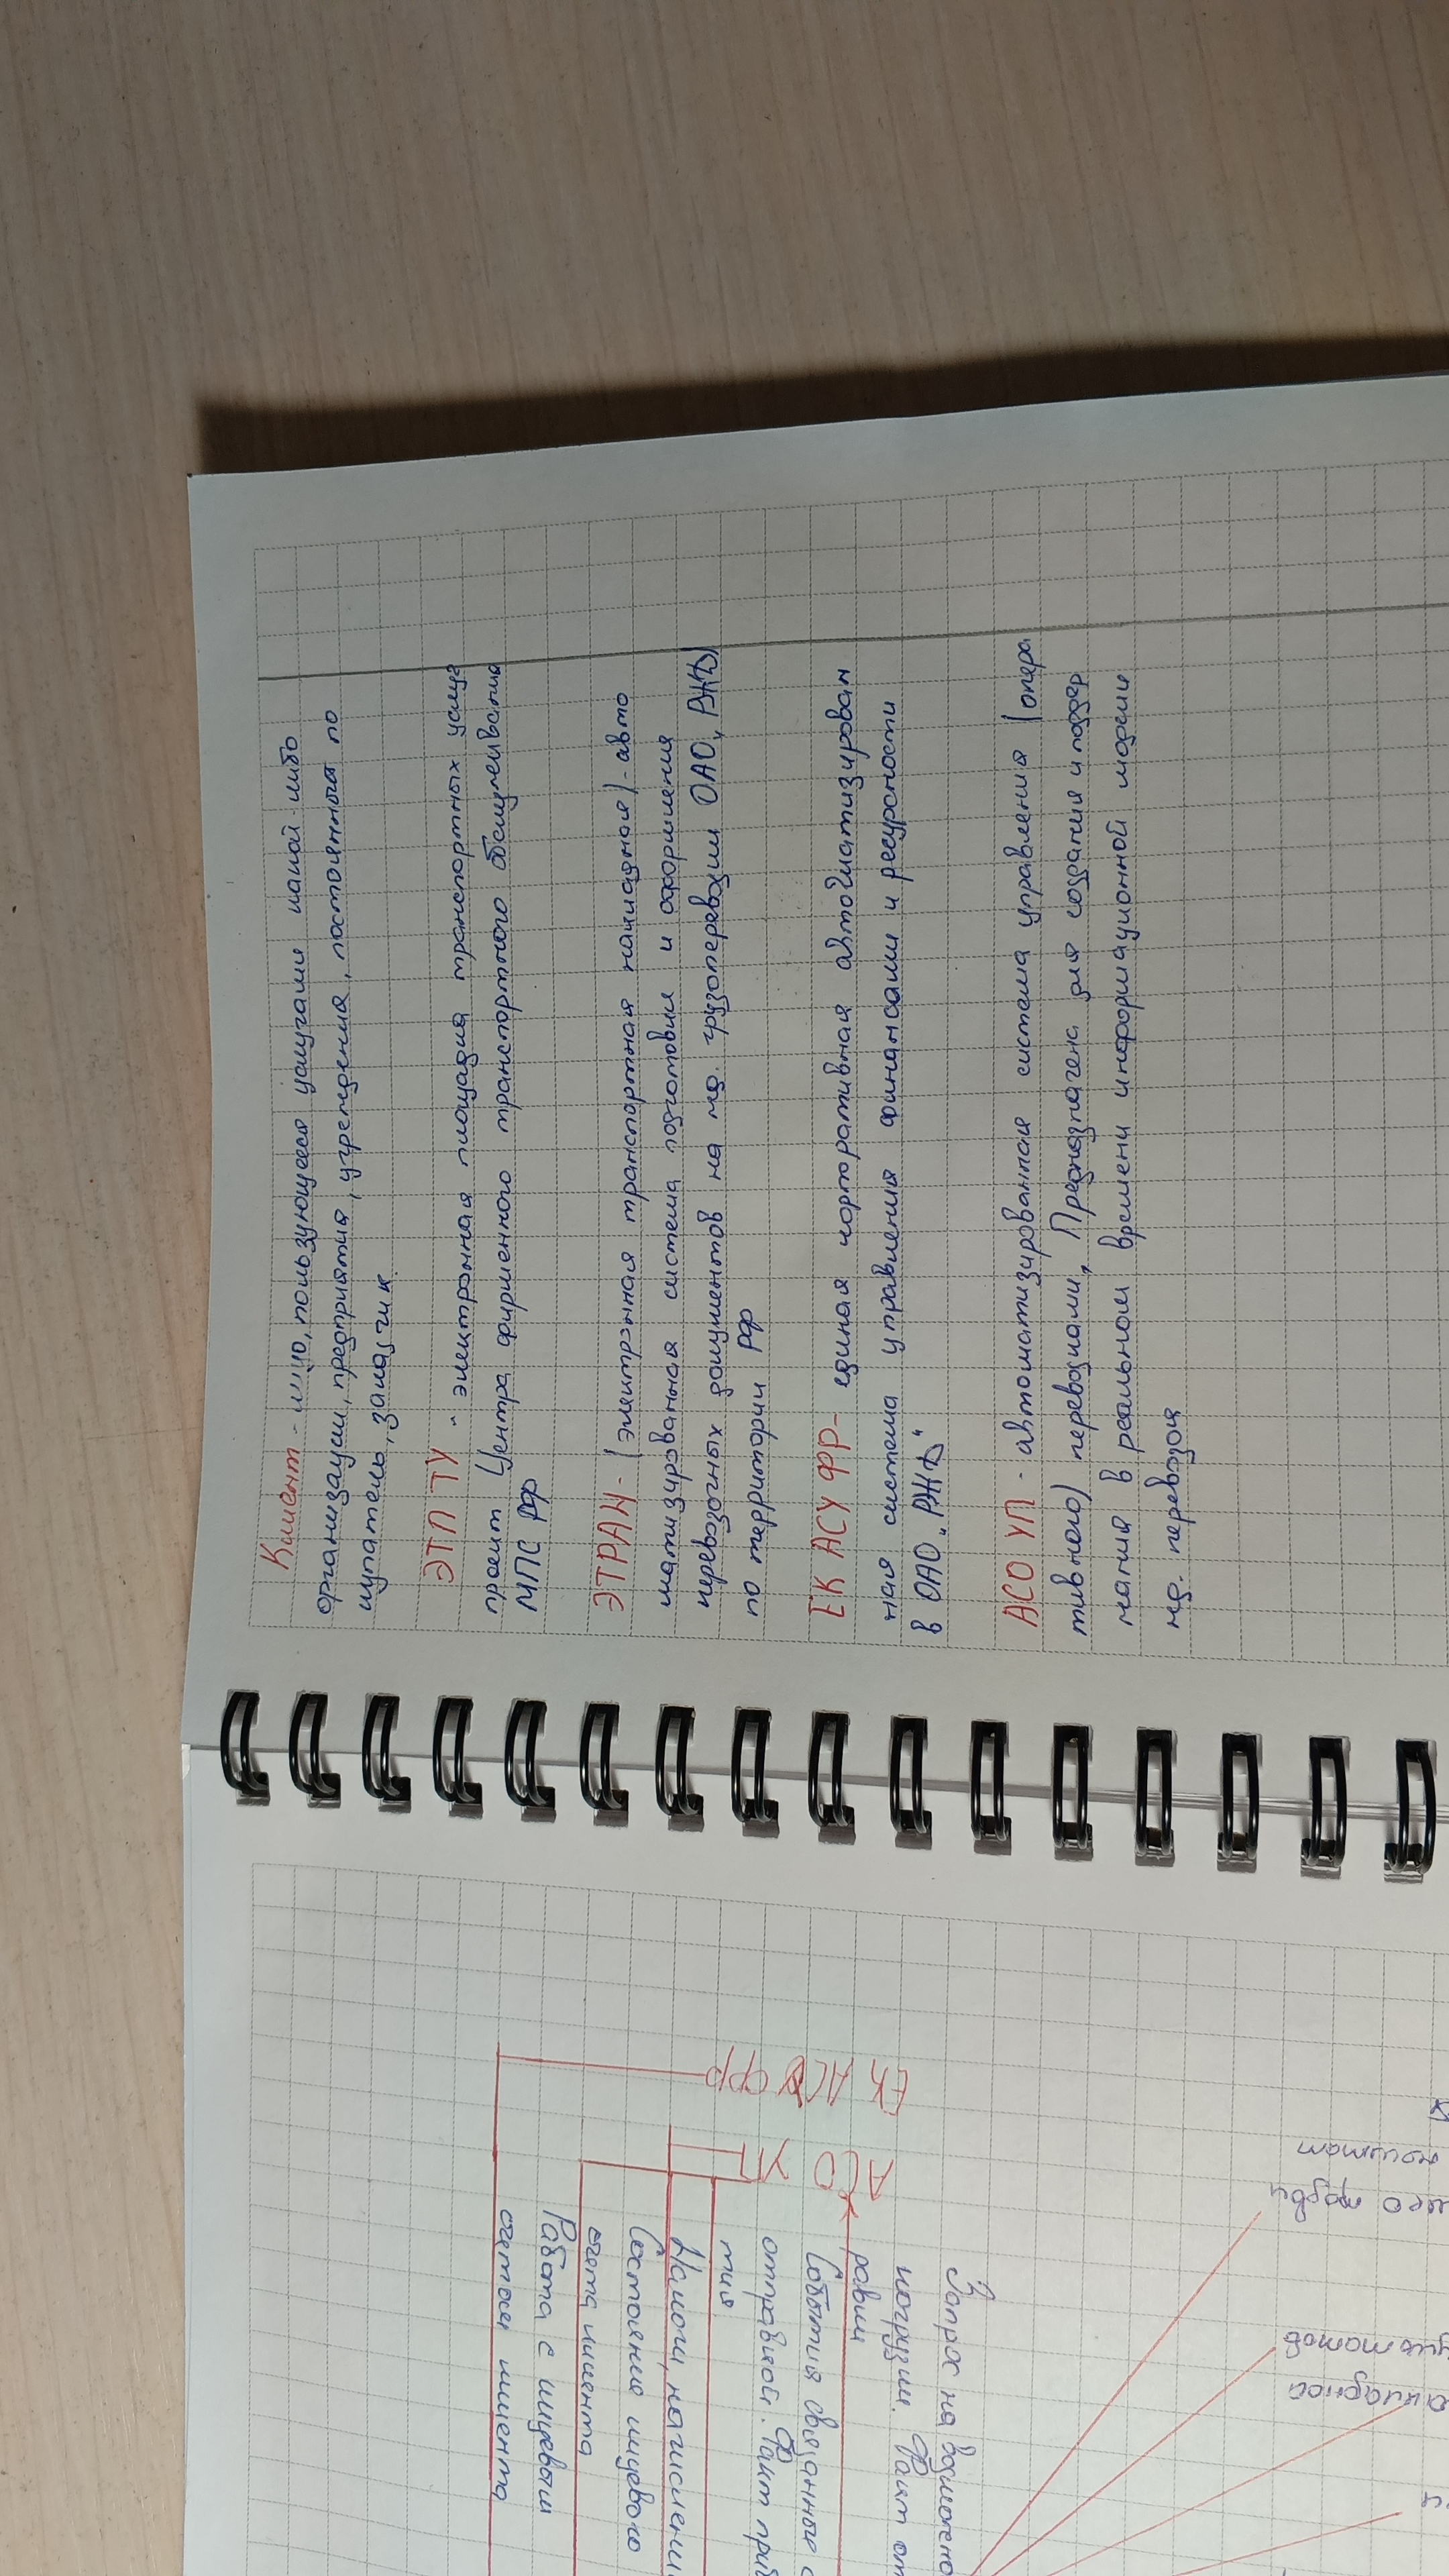 Клиент - лицо, пользующееся услугами какой-либо
организации, предприятия, учреждения, постоянный по
купатель, заказчик.
ЭТП ТУ - электронная площадка транспортных услуг
проект Центра фирменного транспортного обслуживания
МПС РФ
ЭТРАН - (электронная транспортная накладная) - авто
матизированная система подготовки и оформления
перевозочных документов на жд. грузоперевозки ОАО „РЖД)
по территории РФ
ЕК АСУ ФР - единая корпоративная автоматизирован
ная система управления финансами и ресурсности
в ОАО „РЖД"
АСО УП - автоматизированная система управления (опера
тивного) перевозками, Предназначена для создания и поддер
жания в реальном времени информационной модели
жд. перевозок
ЕК АСУ ФР
АСО УП
Запрос на
погрузки. Факт
События связанные с
отправкой. Факт
Состояние лицевого
счета клиента
Работа с лицевым
счетом клиента